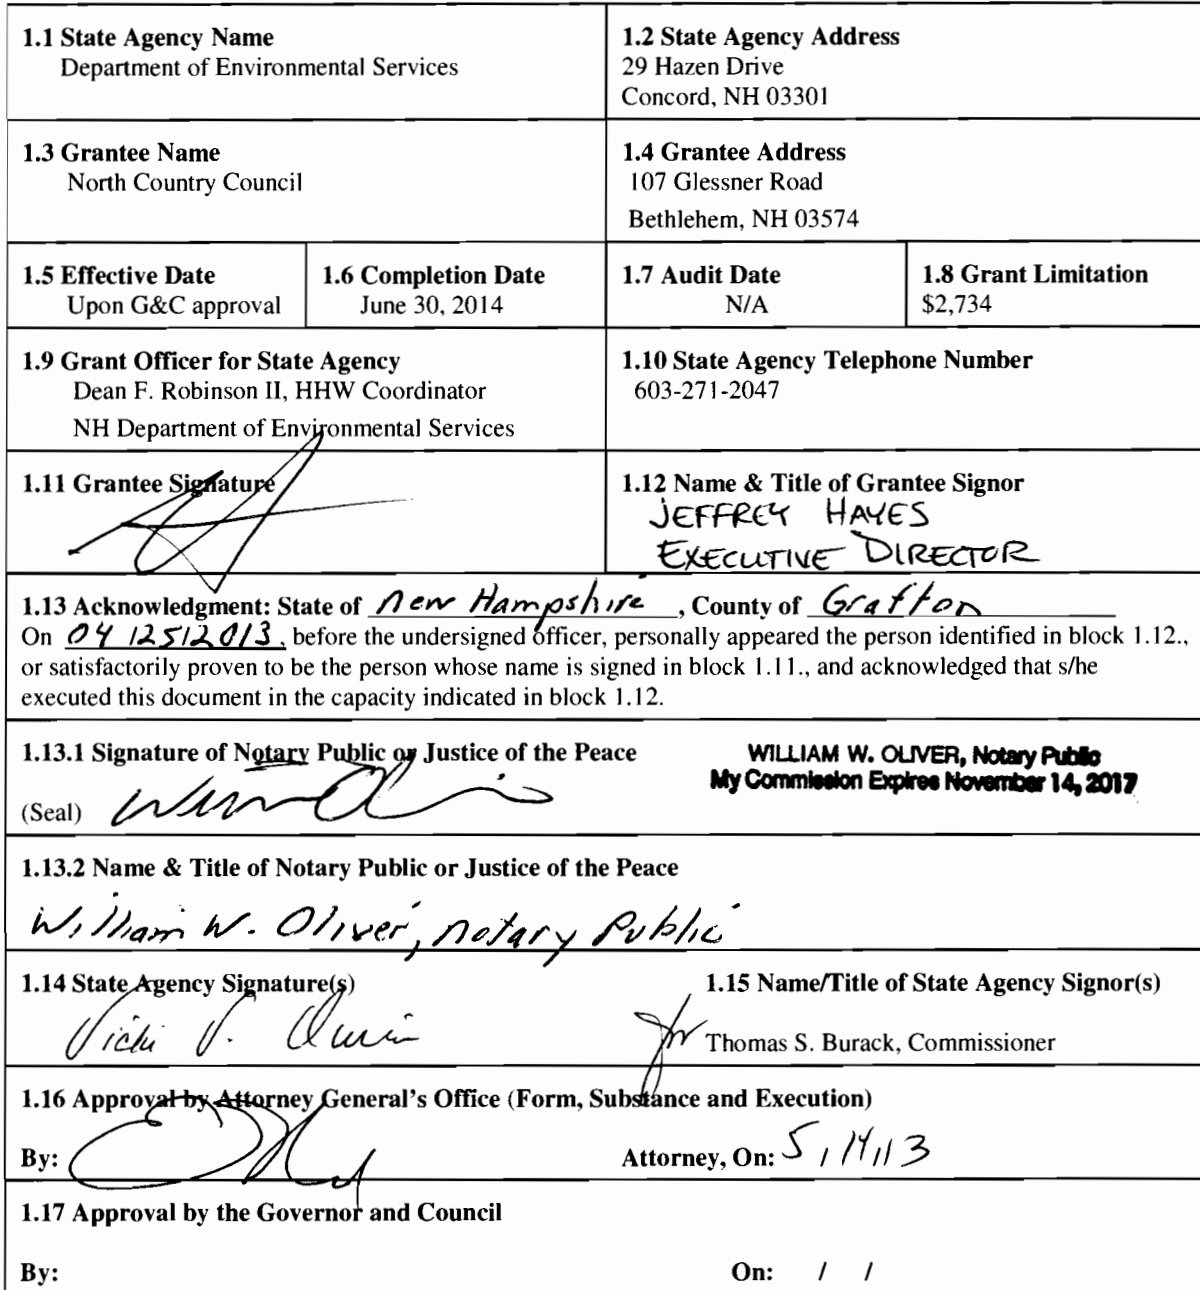 1.1 State Agency Name
Department of Environmental Services
1.2 State Agency Address
29 Hazen Drive
Concord, NH 03301
1.3 Grantee Name
North Country Council
1.4 Grantee Address
107 Glessner Road
Bethlehem, NH 03574
1.5 Effective Date
Upon G&C approval
1.6 Completion Date
June 30, 2014
1.7 Audit Date
N/A
1.8 Grant Limitation
$2,734
1.9 Grant Officer for State Agency
Dean F. Robinson II, HHW Coordinator
NH Department of Environmental Services
1.10 State Agency Telephone Number
603-271-2047
1.11 Grantee Signature
1.12 Name & Title of Grantee Signor
JEFFREY HAYES
EXECUTIVE DIRECTOR
1.13 Acknowledgment: State of New Hampshire, County of Grafton
On 04/25/2013, before the undersigned officer, personally appeared the person identified in block 1.12.,
or satisfactorily proven to be the person whose name is signed in block 1.11., and acknowledged that s/he
executed this document in the capacity indicated in block 1.12.
1.13.1 Signature of Notary Public or Justice of the Peace
(Seal)
WILLIAM W. OLIVER, Notary Public
My Commission Expires November 14, 2017
1.13.2 Name & Title of Notary Public or Justice of the Peace
William W. Oliver, Notary Public
1.14 State Agency Signature(s)
Vicki V. Quiram
1.15 Name/Title of State Agency Signor(s)
for Thomas S. Burack, Commissioner
1.16 Approval by Attorney General's Office (Form, Substance and Execution)
By:
Attorney, On: 5/14/13
1.17 Approval by the Governor and Council
By:
On: / /